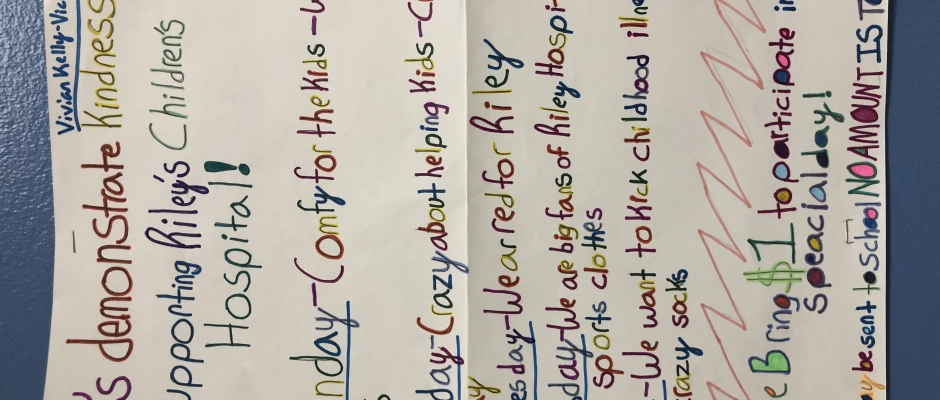 Vivian Kelly-Vic
's demonstrate Kindness
upporting Riley's Children's
Hospital!
nday-Comfy for the Kids-
day-Crazy about helping Kids-
esday-We are red for Riley
day-We are big fans of Riley Hospi
sports clothes
-We want to kick childhood illne
crazy socks
e Bring $1 to participate in
speacial day!
ay be sent to school NO AMOUNT IS T